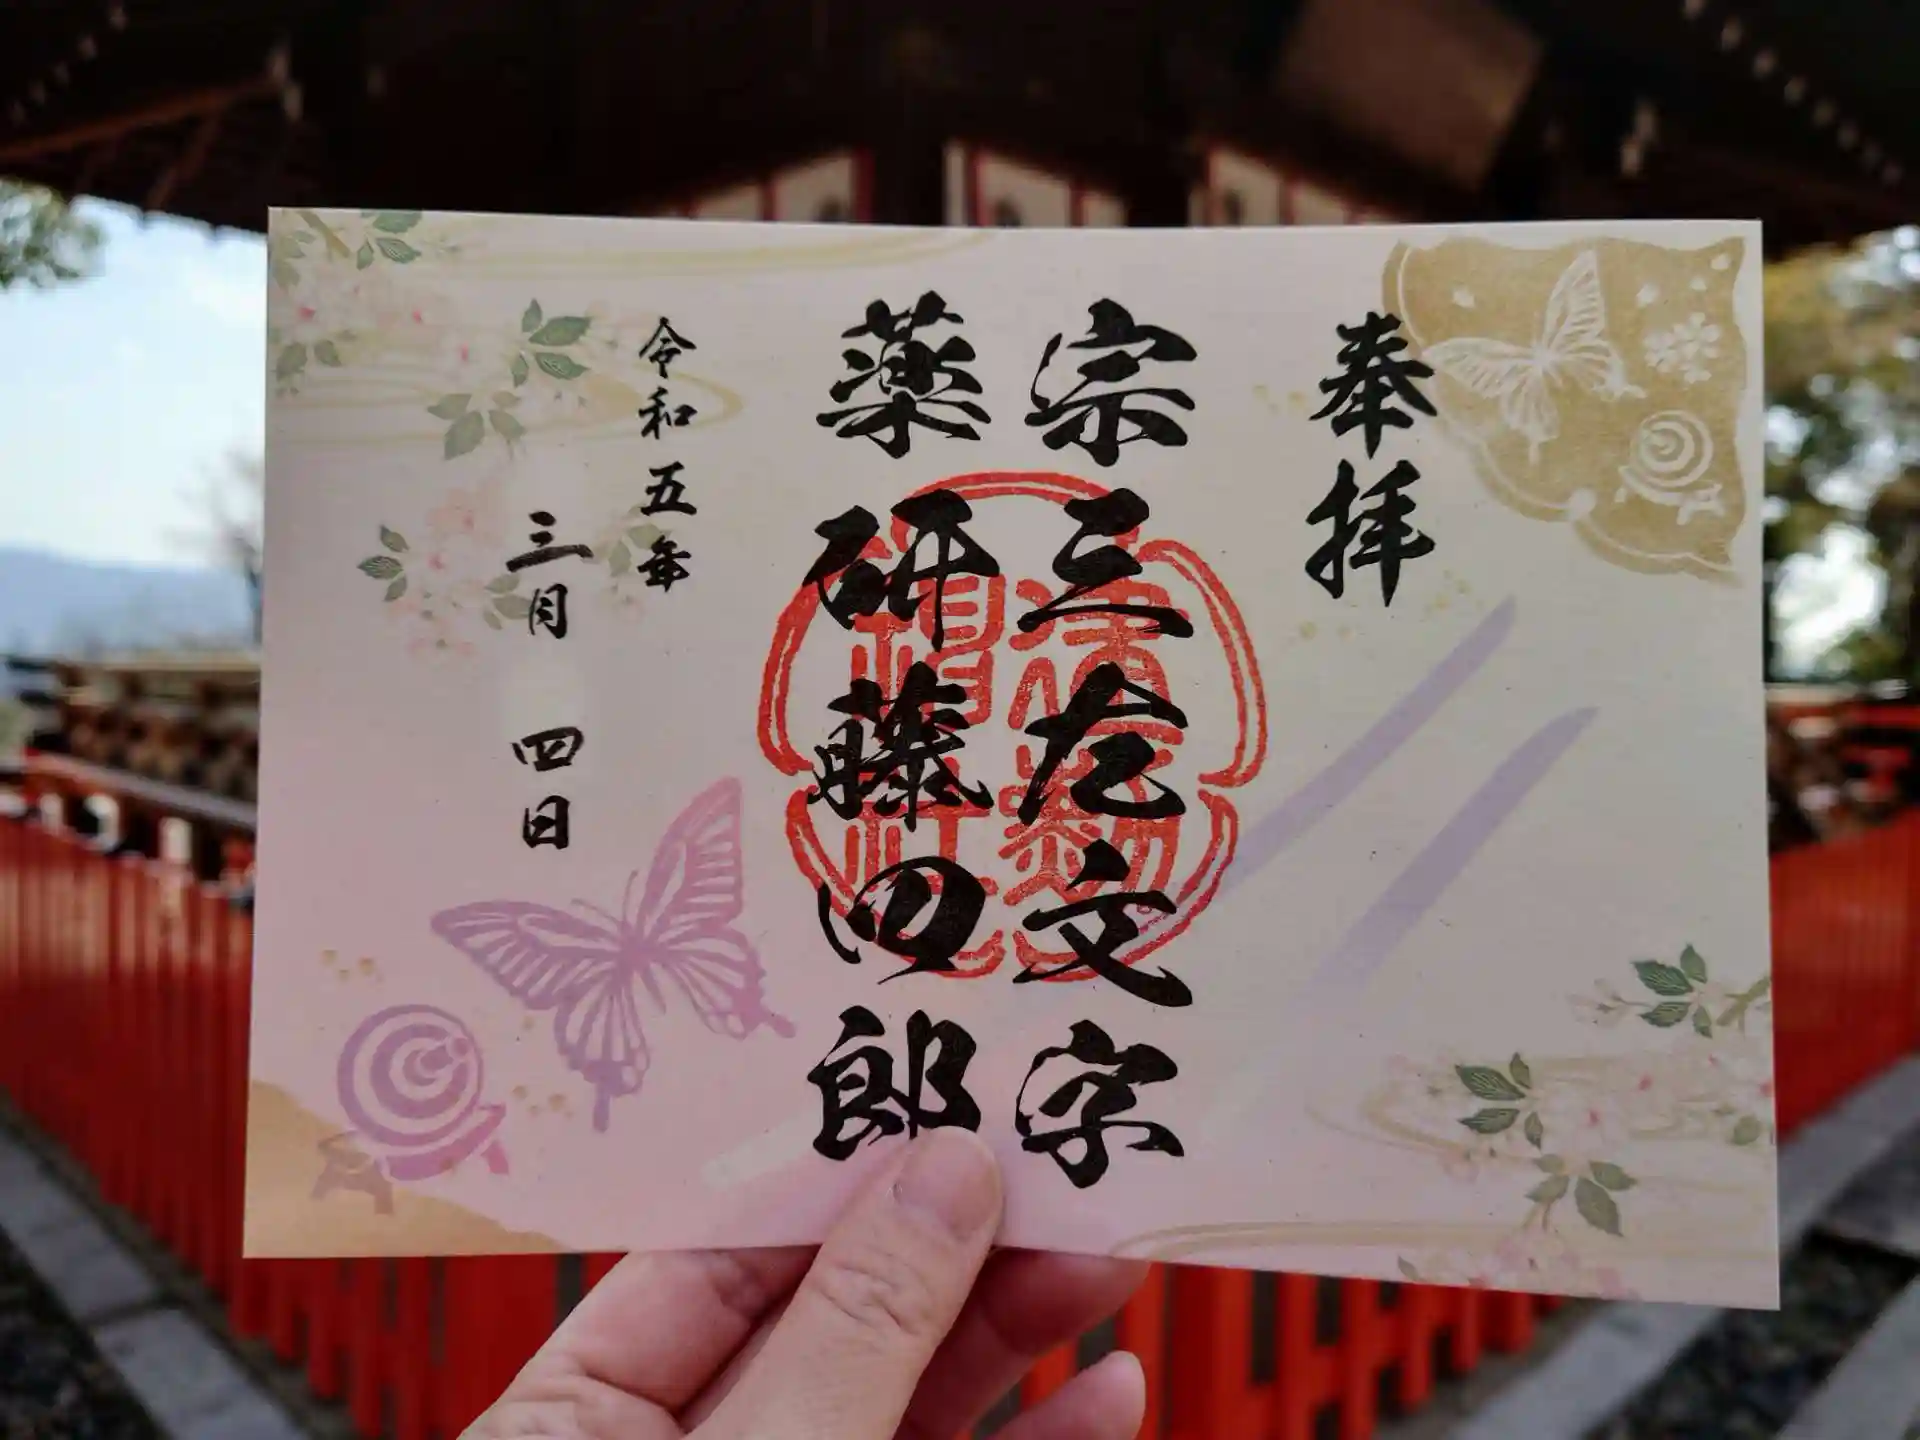 奉拝
宗三左文字
薬研藤四郎
令和五年
三月 四日
建勲
神社